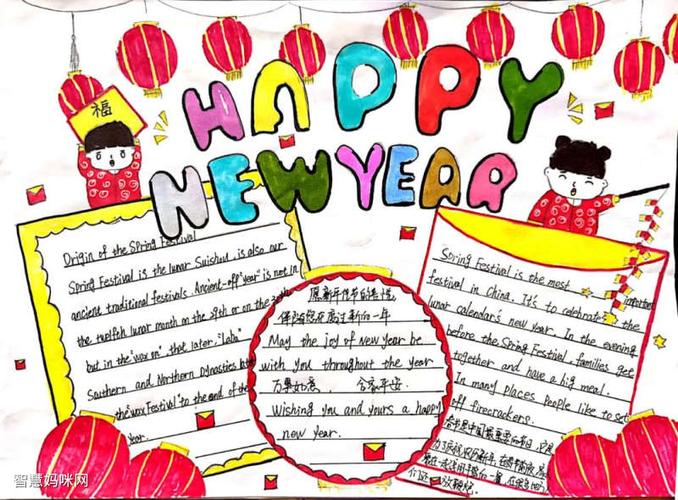 HAPPY
NEW YEAR
福
Origin of the Spring Festival
Spring Festival is the lunar Suishou, is also our
ancient traditional festivals. Ancient-off "year" is not in
the twelfth lunar month on the 29th or on the 30th
but in the "wax on" that later "Laba"
Southern and Northern Dynasties
the "wax Festival" to the end of the
year.
愿新年
新的一年
May the joy of New year be
with you throughout the year
万事如意 合家平安
Wishing you and yours a happy
new year.
Spring Festival is the most important
festival in China. It's to celebrate the
lunar calendar's new year. In the evening
before the Spring Festival families get
together and have a big meal.
in many places people like to set
off firecrackers.
春节是中国最重要的节日
智慧妈咪网